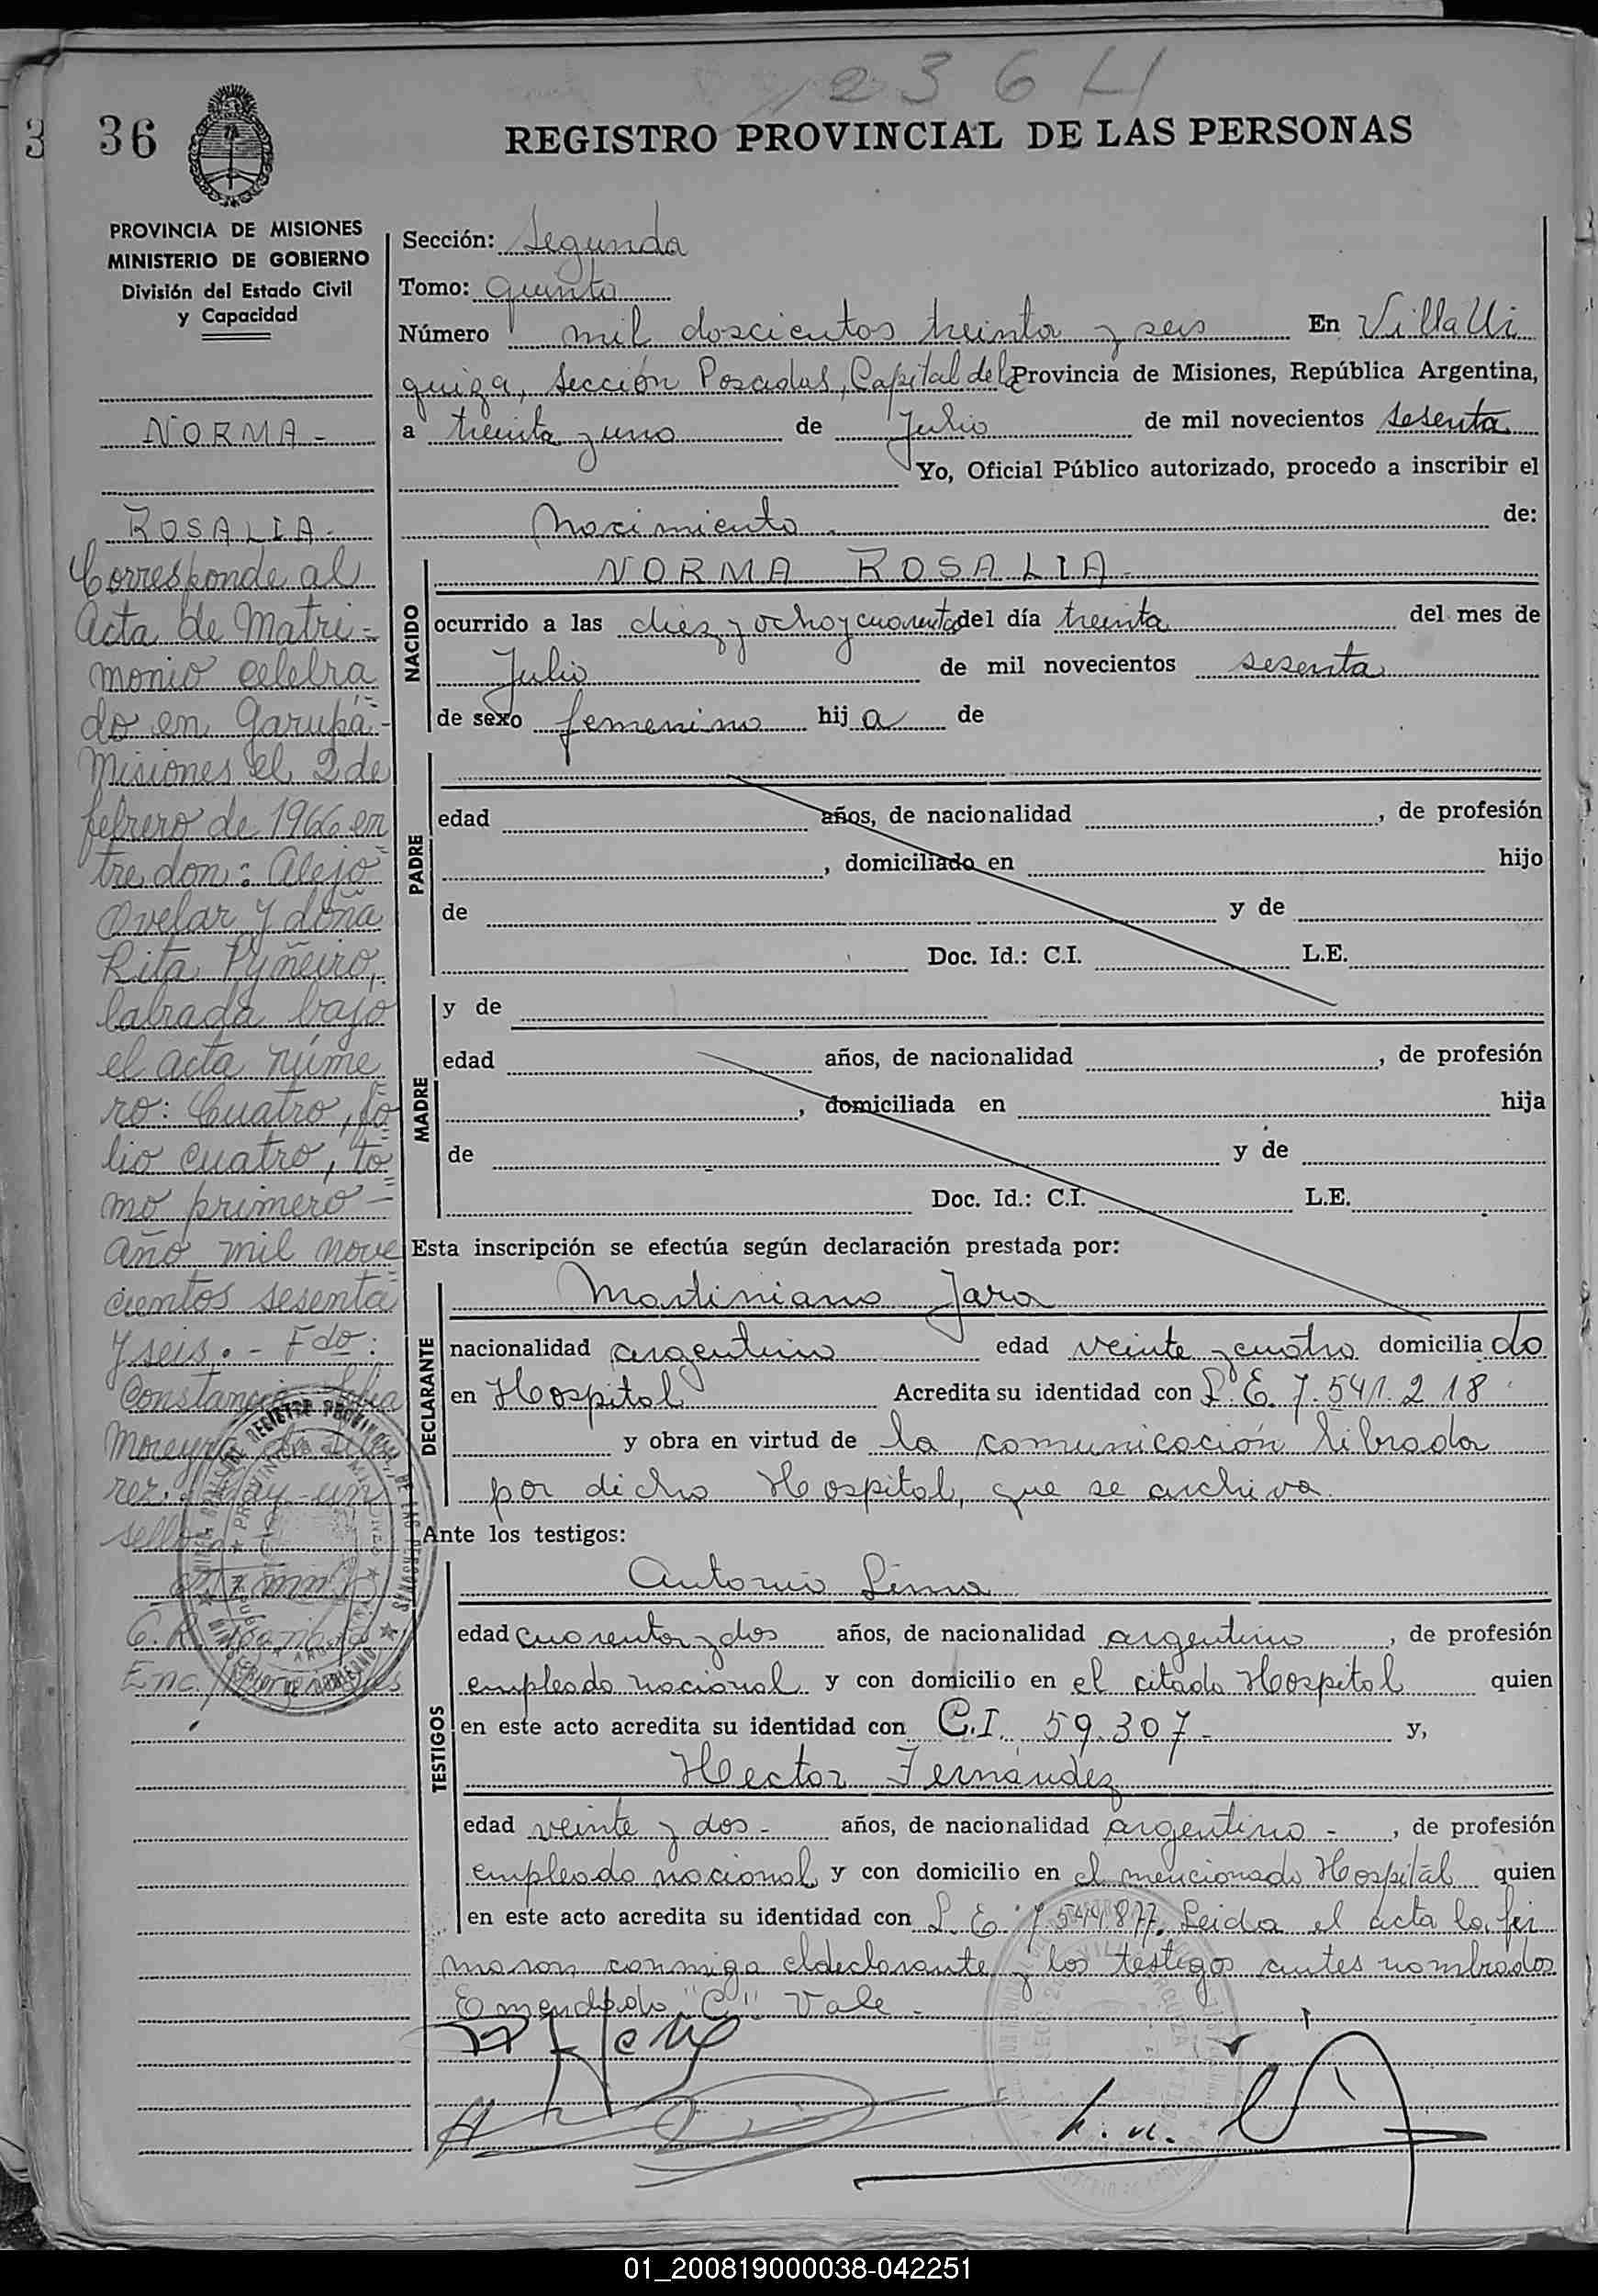 2364
3 36
REGISTRO PROVINCIAL DE LAS PERSONAS
PROVINCIA DE MISIONES
MINISTERIO DE GOBIERNO
División del Estado Civil
y Capacidad
NORMA -
ROSALIA -
Corresponde al
Acta de Matri=
monio celebra
do en Garupá -
Misiones el 2 de
febrero de 1966 en
tre don: Alejo
Ovelar y doña
Rita Pyñeiro,
labrada bajo
el acta núme
ro: Cuatro, fo
lio cuatro, to
mo primero -
año mil nove
cientos sesenta
y seis. - Fdo:
Constancia
Moreyra
rez. Hay un
sello
Sección: Segunda
Tomo: Quinto
Número mil doscientos treinta y seis En Villa Ur
quiza, Sección Posadas, Capital de la Provincia de Misiones, República Argentina,
a treinta y uno de Julio de mil novecientos sesenta
Yo, Oficial Público autorizado, procedo a inscribir el
Nacimiento de:
NACIDO
NORMA ROSALIA -
ocurrido a las diez y ocho y cuarenta del día treinta del mes de
Julio de mil novecientos sesenta
de sexo femenino hij a de
PADRE
edad años, de nacionalidad , de profesión
, domiciliado en hijo
de y de
Doc. Id.: C.I. L.E.
MADRE
y de
edad años, de nacionalidad , de profesión
, domiciliada en hija
de y de
Doc. Id.: C.I. L.E.
Esta inscripción se efectúa según declaración prestada por:
DECLARANTE
Martiniano Jara
nacionalidad argentino edad veinte y cuatro domicilia do
en Hospital Acredita su identidad con L. E. 7.541.218
y obra en virtud de la comunicación librada
por dicho Hospital, que se archiva.
Ante los testigos:
TESTIGOS
Antonio Lima
edad cuarenta y dos años, de nacionalidad argentino , de profesión
empleado nacional y con domicilio en el citado Hospital quien
en este acto acredita su identidad con C.I. 59.307 - y,
Hector Fernández
edad veinte y dos - años, de nacionalidad argentino - , de profesión
empleado nacional y con domicilio en el mencionado Hospital quien
en este acto acredita su identidad con L. E. 7.541.877. Leida el acta la fir
maron conmigo el declarante y los testigos antes nombrados
Emendado "C" Vale -
01_200819000038-042251